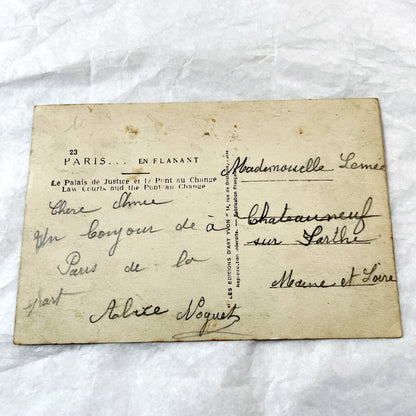 23
PARIS... EN FLANANT
Le Palais de Justice et le Pont au Change
Law Courts and the Pont au Change
Chere Amie
Un bonjour de
Paris de la
part
Alice Noguet
"LES EDITIONS D'ART YVON"
Mademoiselle Lemée
à Chateauneuf
sur Sarthe
Maine et Loire